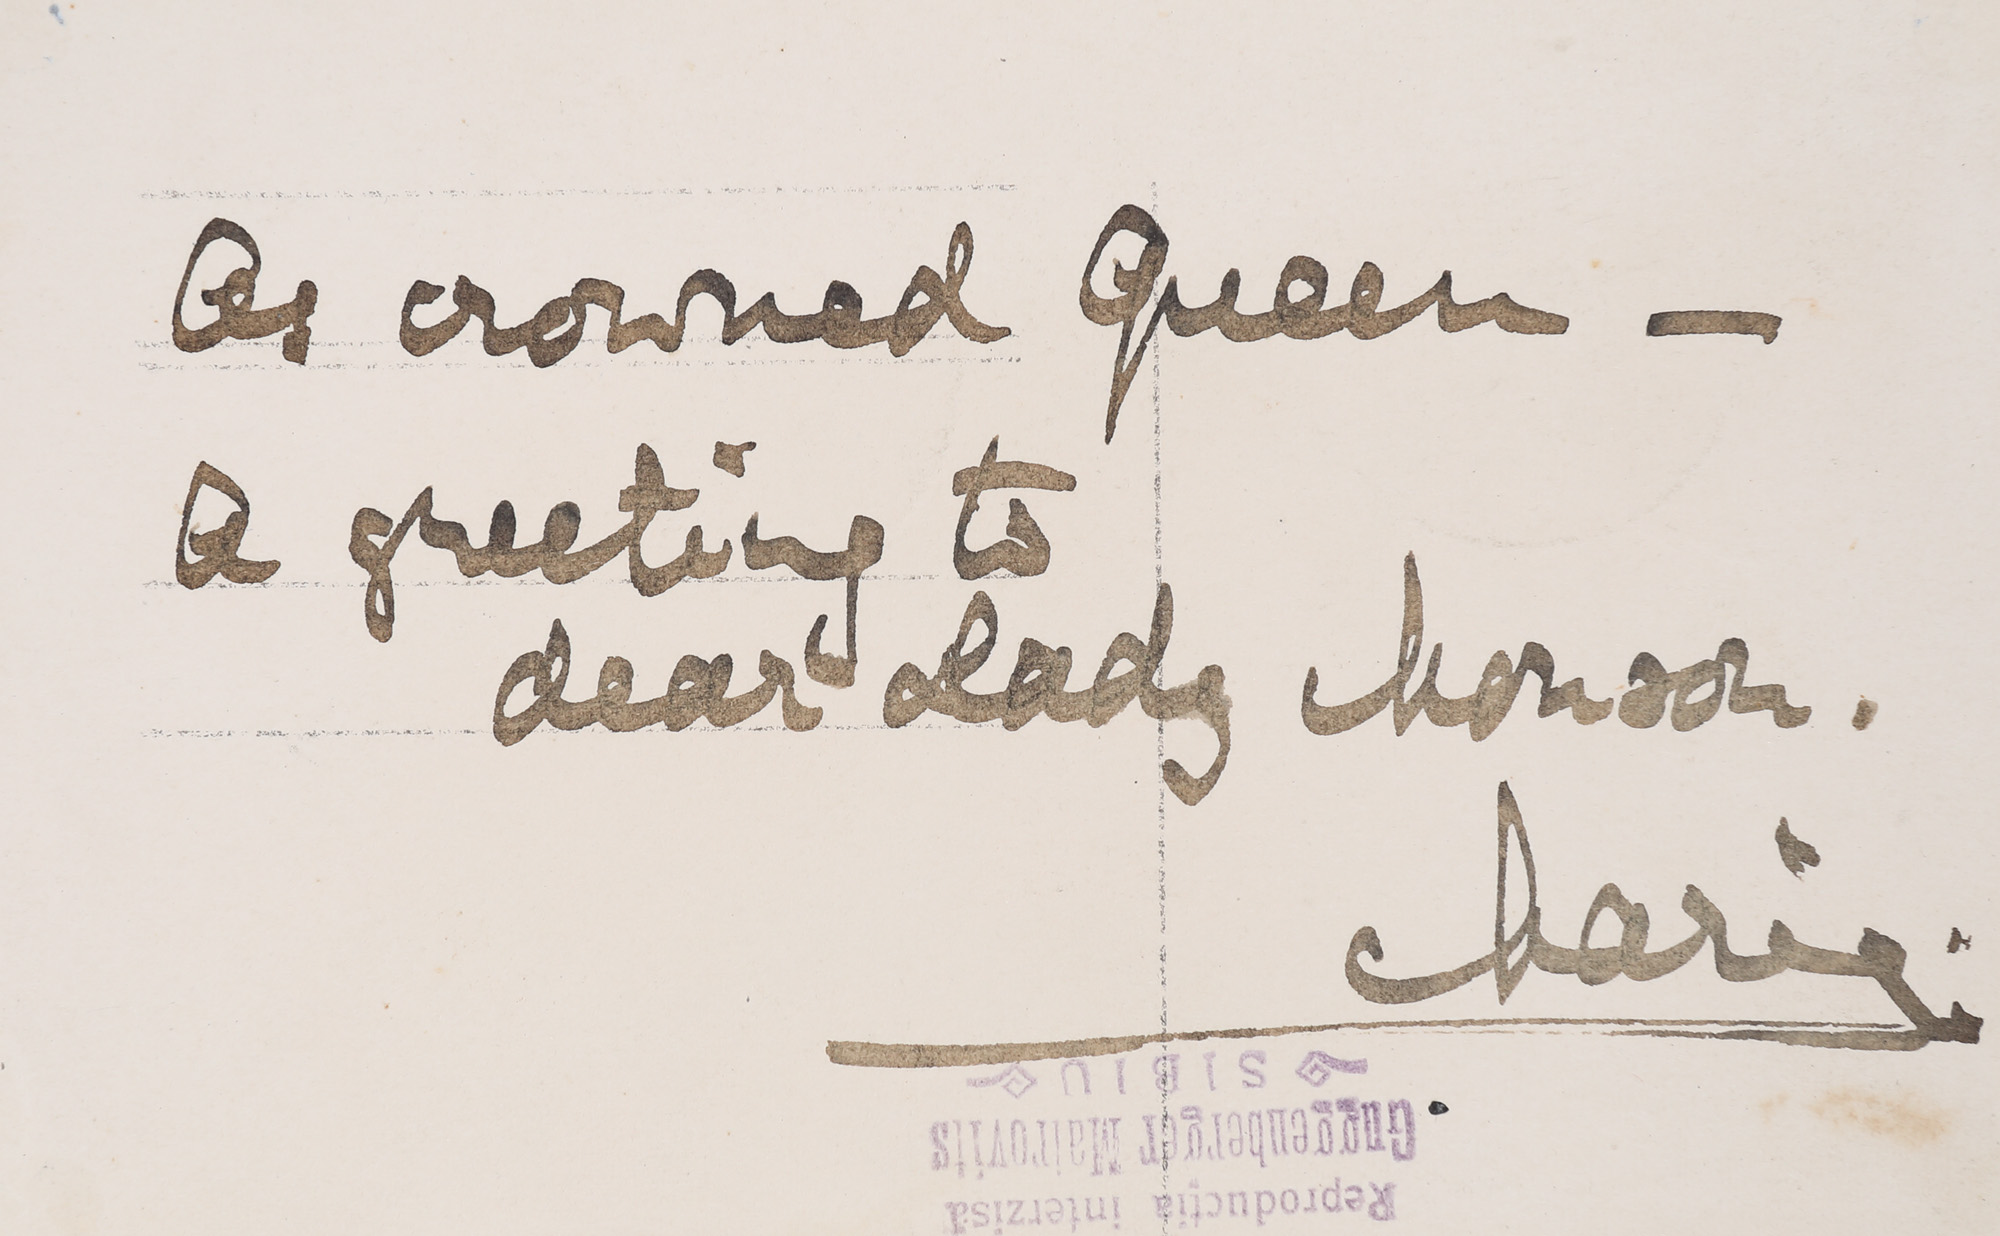 As crowned Queen —
A greeting to
dear Lady Monson.
Marie
Reproducția interzisă
Guggenberger Mairovits
SIBIU